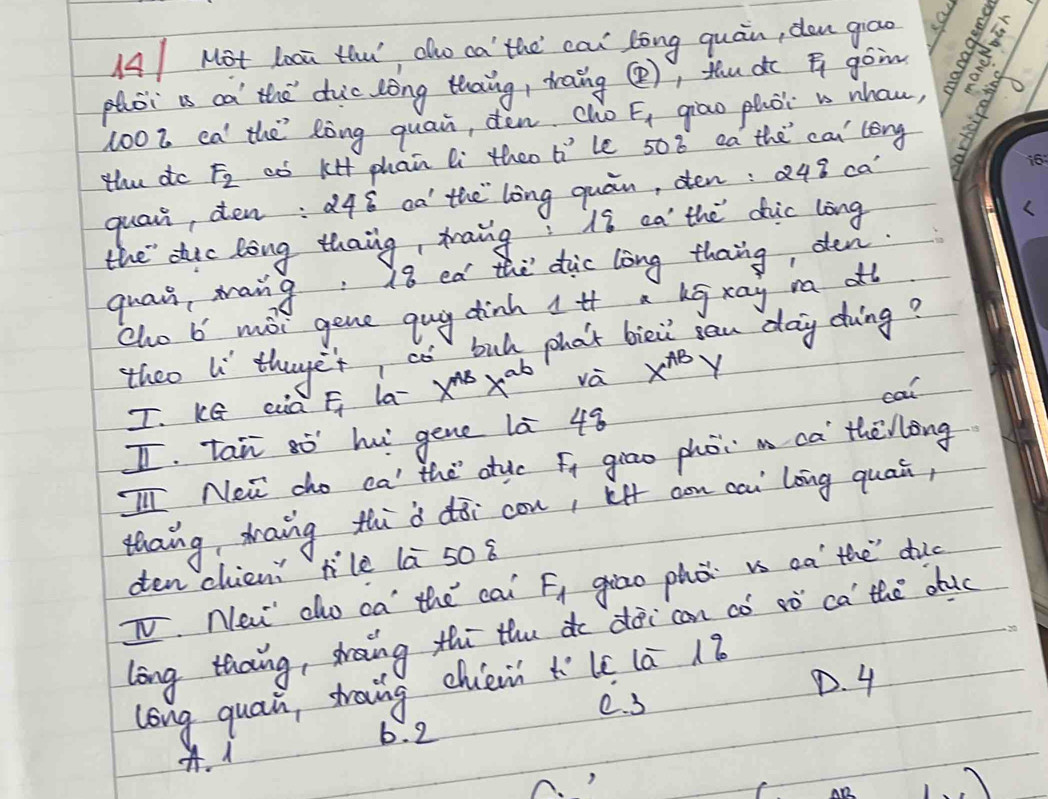 14/ Một loài thú, cho cá thể cái lông quăn, đen giao
phối vs cá thể đực lông thẳng, trắng (P), thu đc F1 gồm
100% cá thể lông quăn, đen. Cho F1 giao phối vs nhau,
thu đc F2 có KH phân li theo tỉ lệ 50% cá thể cái lông
quăn, đen : 24% cá thể lông quăn, đen : 24% cá
thể đực lông thẳng, trắng : 1% cá thể đực lông
quăn, trắng : 1% cá thể đực lông thẳng, đen.
Cho b mỗi gene quy định 1 tt & kg xảy ra đb
theo lí thuyết, có buh phát biểu sau đây đúng?
I. KG của F1 là X^AB X^ab và X^AB Y
II. Tần số hvị gene là 4%
III Nếu cho cá thể đực F1 giao phối vs cá thể cái lông
thẳng, trắng thì ở đời con, KH con cái lông quăn,
đen chiếm tỉ lệ là 50%
IV. Nếu cho cá thể cái F1 giao phối vs cá thể đực
lông thẳng, trắng thì thu đc đời con có số cá thể đực
lông quăn, trắng chiếm tỉ lệ là 1%
A. 1 b. 2 C. 3 D. 4
AB
management